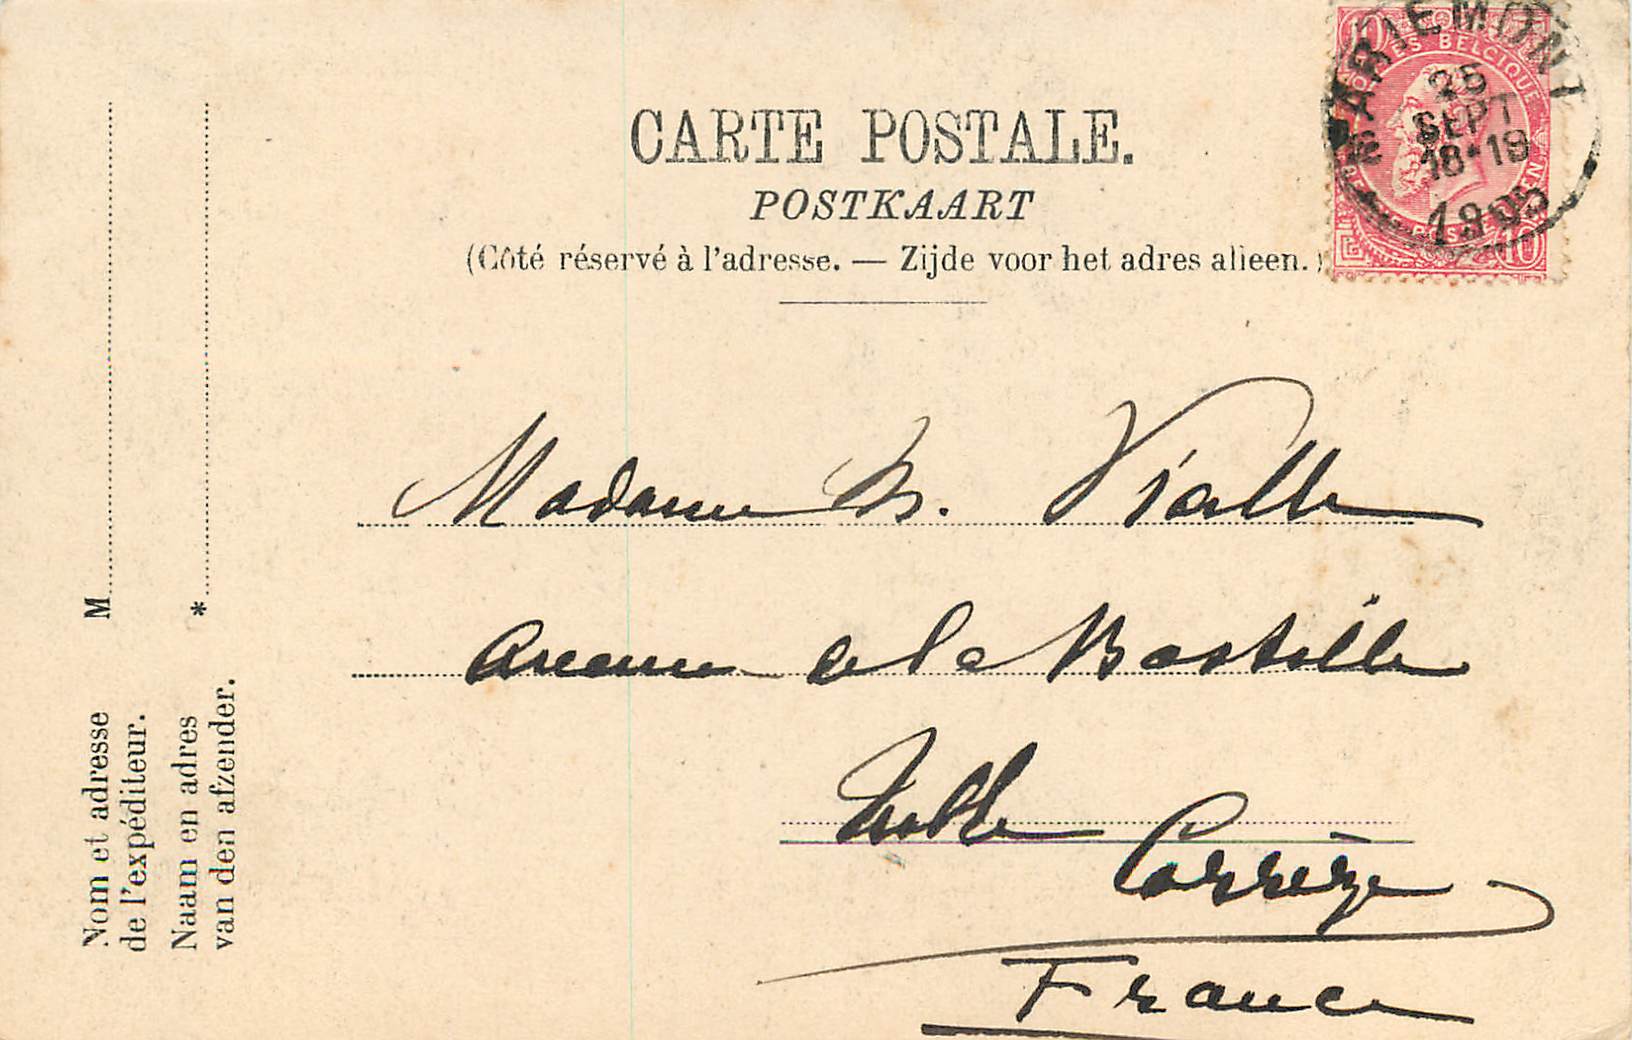 CARTE POSTALE.
POSTKAART
(Côté réservé à l'adresse. — Zijde voor het adres alleen.)
MARIEMONT
25
SEPT
18-19
1905
POSTES BELGIQUE
10
M
*
Nom et adresse
de l'expéditeur.
Naam en adres
van den afzender.
Madame Vialle
Avenue de la Bastille
Tulle
Corrèze
France